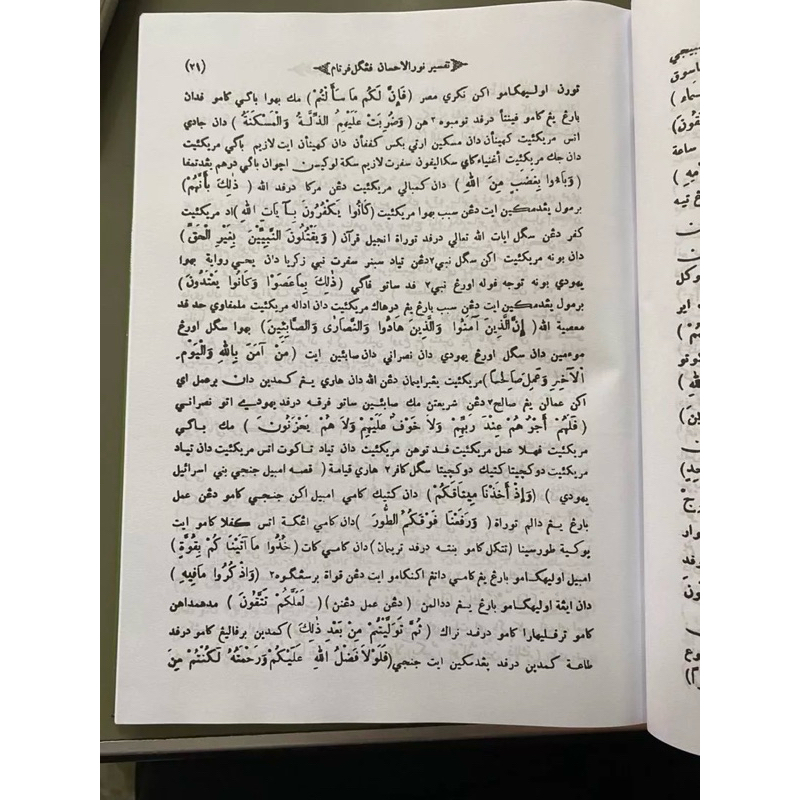 تفسير نورالاحسان فڠݢل فرتام (٢١)
تورن اوليهكامو اكن نكري مصر (فَإِنَّ لَكُم مَا سَأَلْتُمْ) مك بهوا باݢي كامو فدان
بارڠ يڠ كامو فينتأ درفد تومبوه٢هن (وَضُرِبَتْ عَلَيْهِمُ الذِّلَّةُ وَالْمَسْكَنَةُ) دان جادي
اتس مريكئيت كهينأن دان مسكين ارتي بكس كففأن دان كهينأن ايت لازيم باݢي مريكئيت
دان جك مريكئيت أغنياء سكاليفون سفرت لازيم سكة لوكيسن اچوان باݢي درهم
(وَبَاءُوا بِغَضَبٍ مِنَ اللهِ) دان كمبالي مريكئيت دڠن مركا درفد الله (ذٰلِكَ بِأَنَّهُمْ)
برمول يڠدمكين ايت دڠن سبب بهوا مريكئيت (كَانُوا يَكْفُرُونَ بِآيَاتِ اللهِ) اد مريكئيت
كفر دڠن سݢل ايات الله تعالى درفد توراة انجيل قرآن (وَيَقْتُلُونَ النَّبِيِّينَ بِغَيْرِ الْحَقِّ)
دان بونه مريكئيت اكن سݢل نبي٢ دڠن تياد سبنر سفرت نبي زكريا دان يحيى رواية بهوا
يهودي بونه توجه فوله اورڠ نبي٢ فد ساتو فاݢي (ذٰلِكَ بِمَا عَصَوْا وَكَانُوا يَعْتَدُونَ)
برمول يڠدمكين ايت دڠن سبب بارڠ يڠ درهاك مريكئيت دان اداله مريكئيت ملمفاوي حد قد
معصية الله (إِنَّ الَّذِينَ آمَنُوا وَالَّذِينَ هَادُوا وَالنَّصَارَى وَالصَّابِئِينَ) بهوا سݢل اورڠ
موءمين دان سݢل اورڠ يهودي دان نصراني دان صابئين ايت (مَنْ آمَنَ بِاللهِ وَالْيَوْمِ
الْآخِرِ وَعَمِلَ صَالِحًا) مريكئيت يڠبرايمان دڠن الله دان هاري يڠ كمدين دان برعمل اي
اكن عمالن يڠ صالح٢ دڠن شريعتن مك صابئين ساتو فرقه درفد يهودي اتو نصراني
(فَلَهُمْ أَجْرُهُمْ عِنْدَ رَبِّهِمْ وَلَا خَوْفٌ عَلَيْهِمْ وَلَا هُمْ يَحْزَنُونَ) مك باݢي
مريكئيت فهلا عمل مريكئيت فد توهن مريكئيت دان تياد تاكوت اتس مريكئيت دان تياد
مريكئيت دوكچيتا كتيك دوكچيتا سݢل كافر٢ هاري قيامة (قصه امبيل جنجي بني اسرائيل
يهودي) (وَإِذْ أَخَذْنَا مِيثَاقَكُمْ) دان كتيك كامي امبيل اكن جنجي كامو دڠن عمل
بارڠ يڠ دالم توراة (وَرَفَعْنَا فَوْقَكُمُ الطُّورَ) دان كامي اڠكة اتس كفلا كامو ايت
بوكية طورسينا (تتكل كامو بنته درفد تريمان) دان كامي كات (خُذُوا مَا آتَيْنَاكُمْ بِقُوَّةٍ)
امبيل اوليهكامو بارڠ يڠ كامي داتڠ اكنكامو ايت دڠن قواة برسڠݢوه٢ (وَاذْكُرُوا مَا فِيهِ)
دان ايڠة اوليهكامو بارڠ يڠ ددالمن (دڠن عمل دڠنن) (لَعَلَّكُمْ تَتَّقُونَ) مدهمداهن
كامو ترفليهارا كامو درفد نراك (ثُمَّ تَوَلَّيْتُمْ مِنْ بَعْدِ ذٰلِكَ) كمدين برفاليڠ كامو درفد
طاعة كمدين درفد يڠدمكين ايت جنجي (فَلَوْلَا فَضْلُ اللهِ عَلَيْكُمْ وَرَحْمَتُهُ لَكُنْتُمْ مِنَ